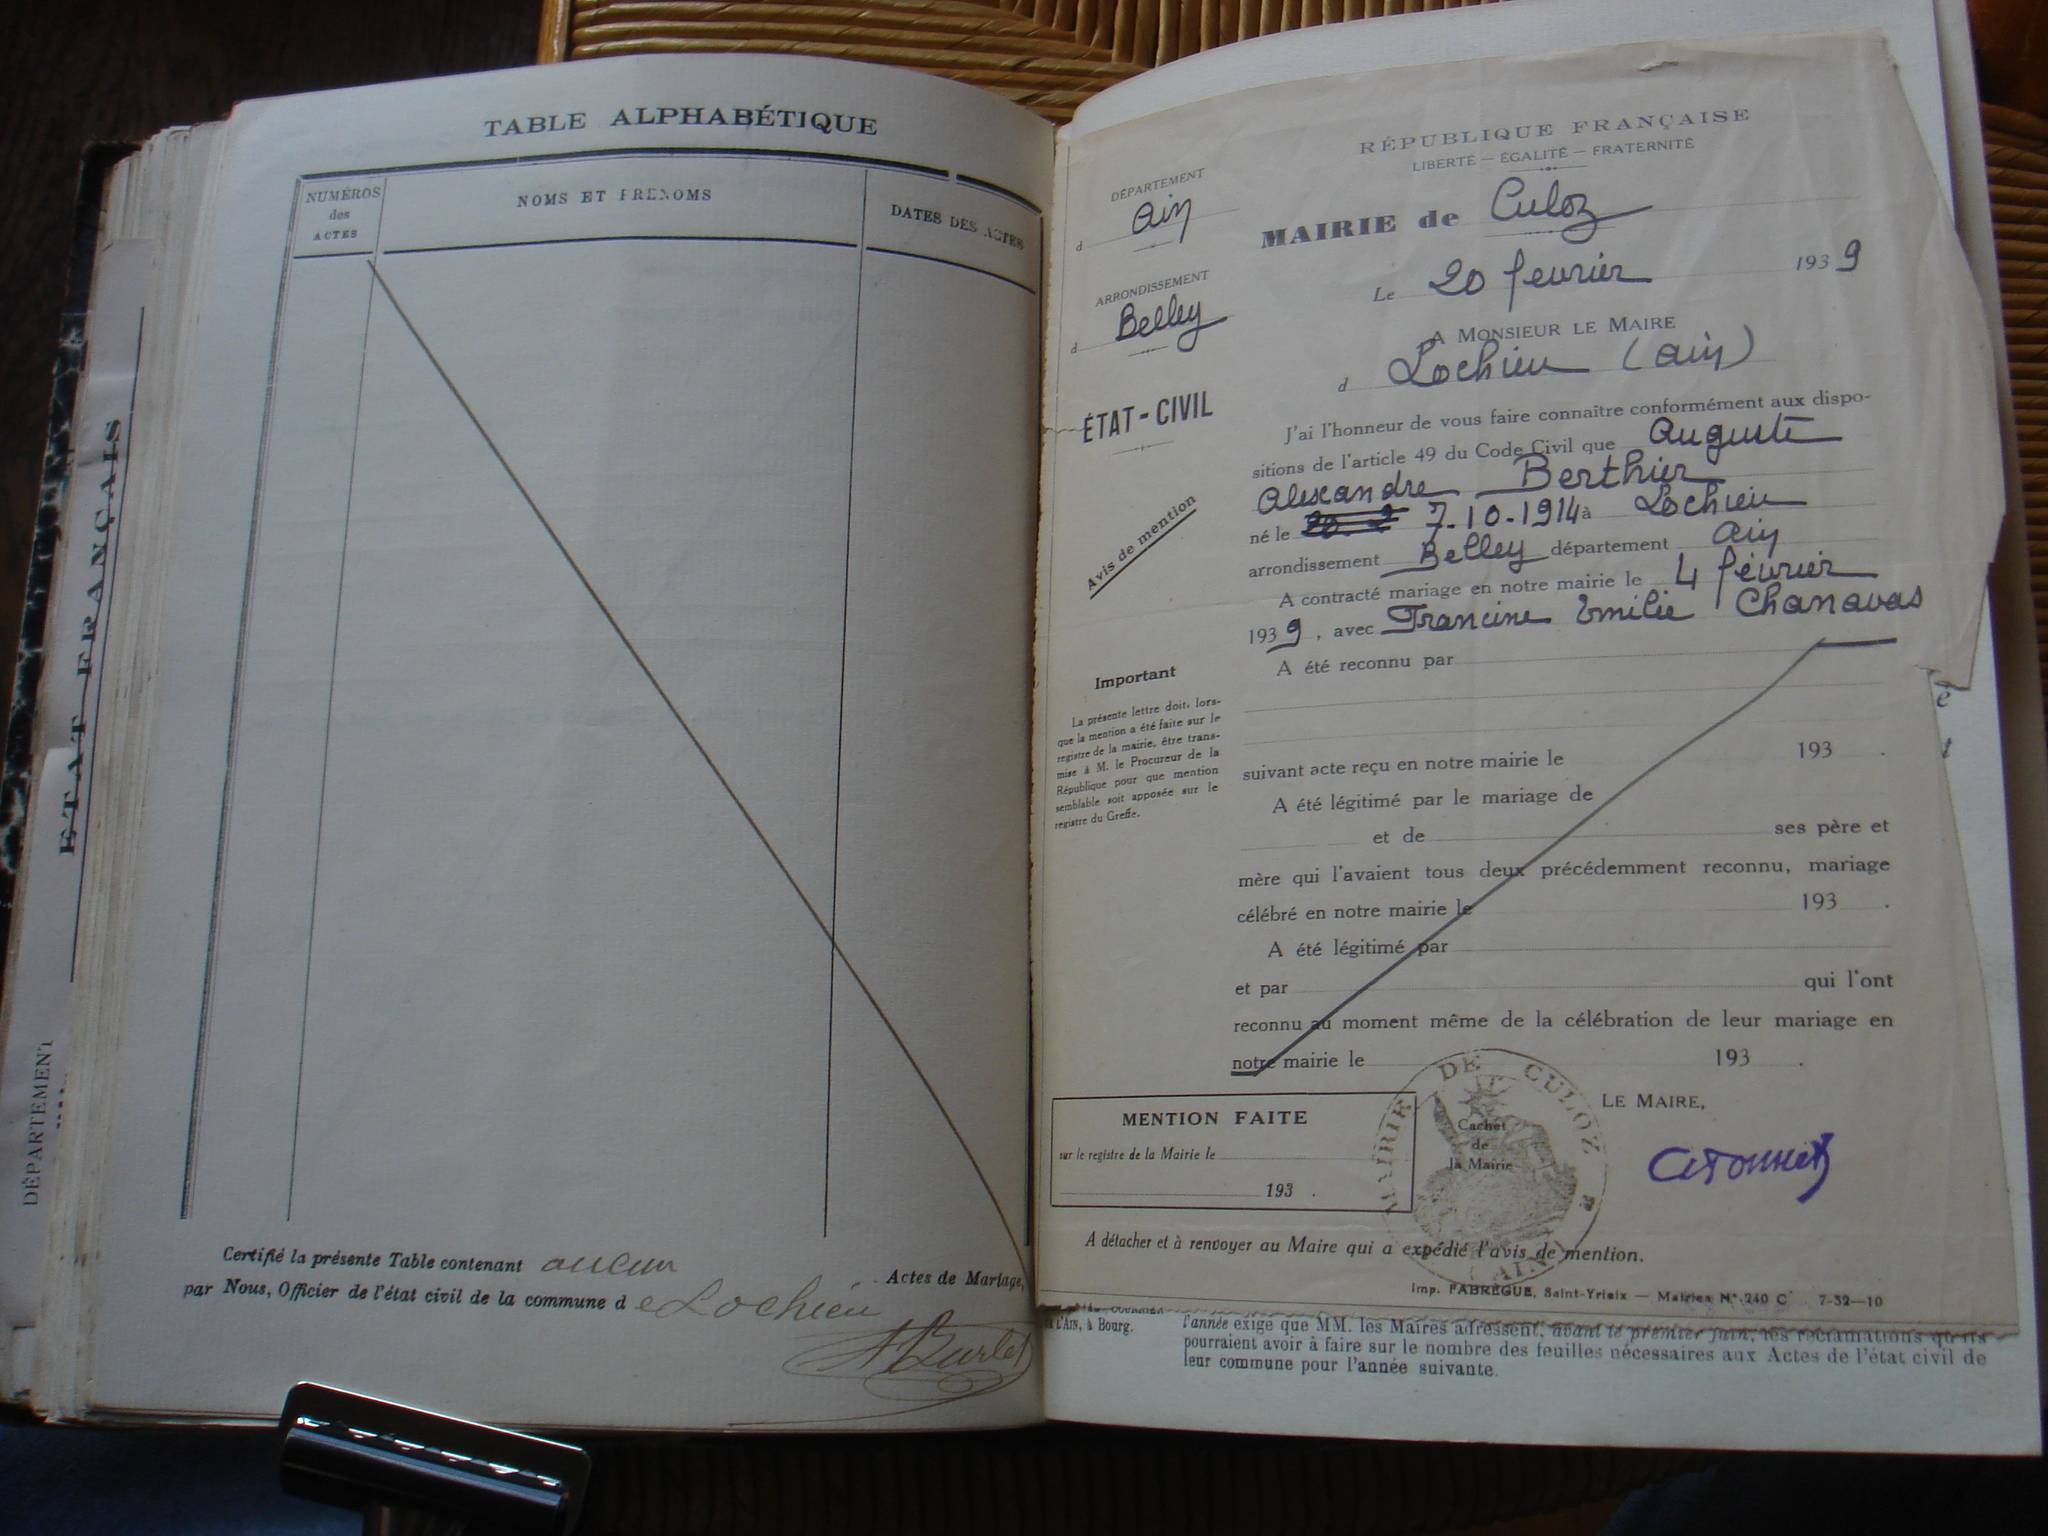 TABLE ALPHABÉTIQUE
NUMÉROS
des
ACTES
NOMS ET PRENOMS
DATES DES ACTES
Certifié la présente Table contenant aucun Actes de Mariage,
par Nous, Officier de l'état civil de la commune de Lochieu
ETAT FRANÇAIS
DÉPARTEMENT
RÉPUBLIQUE FRANÇAISE
LIBERTÉ — ÉGALITÉ — FRATERNITÉ
DÉPARTEMENT
d Ain
ARRONDISSEMENT
d Belley
ÉTAT-CIVIL
Avis de mention
Important
La présente lettre doit, lors-
que la mention a été faite sur le
registre de la mairie, être trans-
mise à M. le Procureur de la
République pour que mention
semblable soit apposée sur le
registre du Greffe.
MAIRIE de Culoz
Le 20 fevrier 1939
A MONSIEUR LE MAIRE
d Lochieu (Ain)
J'ai l'honneur de vous faire connaître conformément aux dispo-
sitions de l'article 49 du Code Civil que Auguste
Alexandre Berthier
né le 7-10-1914 à Lochieu
arrondissement Belley département Ain
A contracté mariage en notre mairie le 4 février
1939, avec Francine Emilie Chanavas
A été reconnu par
suivant acte reçu en notre mairie le 193 .
A été légitimé par le mariage de
et de ses père et
mère qui l'avaient tous deux précédemment reconnu, mariage
célébré en notre mairie le 193 .
A été légitimé par
et par qui l'ont
reconnu au moment même de la célébration de leur mariage en
notre mairie le 193 .
LE MAIRE,
MAIRIE DE CULOZ
(AIN)
Cachet
de
la Mairie
MENTION FAITE
sur le registre de la Mairie le
193 .
A détacher et à renvoyer au Maire qui a expédié l'avis de mention.
Imp. FABRÈGUE, Saint-Yrieix — Mairies N° 240 C 7-32—10
l'Ain, à Bourg.
l'année exige que MM. les Maires adressent, avant le premier juin, les réclamations qu'ils
pourraient avoir à faire sur le nombre des feuilles nécessaires aux Actes de l'état civil de
leur commune pour l'année suivante.